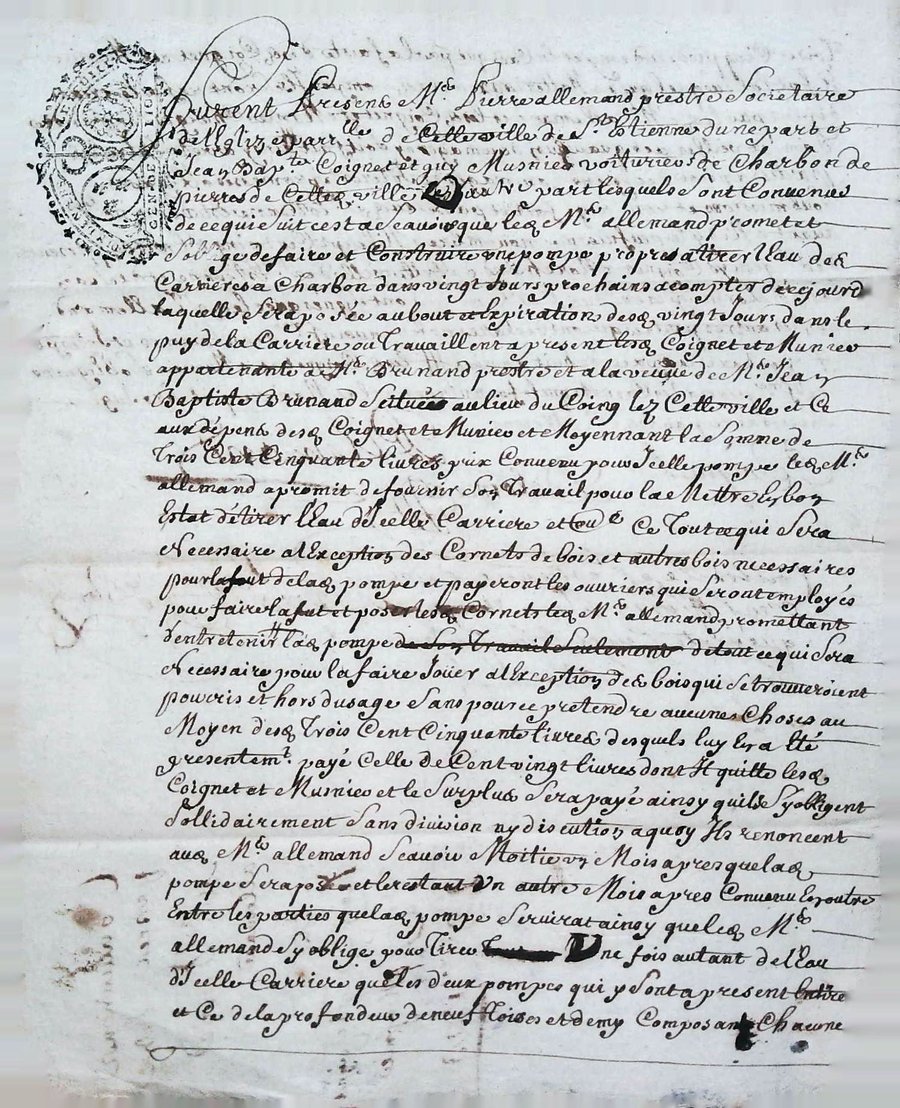 GEN. DE LION
Furent Presens Mre Pierre allemand prestre Societaire
de l'Eglize parrlle de Cette ville de St Estienne d'une part et
Jean Bapte Coignet et guy Musnier voituriers de Charbon de
pierres de Cette ville d'autre part lesquels sont Convenus
de ce qui suit c'est a Scavoir que led Mre allemand promet et
S'oblige de faire et Construire une pompe propre a tirer l'Eau des
Carrieres a Charbon dans vingt Jours prochains a compter de ce jourd
laquelle Sera posée au bout et Expiration desd vingt Jours dans le
puy de la Carriere ou Travaillent a present lesd Coignet et Munier
appartenante a Mre Brunand prestre et a la veuve de Mre Jean
Baptiste Brunand Scituées au lieu du Coing lez Cette ville et Ce
aux dépens desd Coignet et Munier et Moyennant la Somme de
Trois Cent Cinquante livres prix Convenu pour Icelle pompe led Mre
allemand a promit de fournir Son Travail pour la Mettre En bon
Estat de tirer l'Eau d'Icelle Carriere et Ce Tout ce qui Sera
Necessaire a l'Exception des Cornets de bois et autres bois necessaires
pour la fout de lad pompe et payeront les ouvriers qui Seront employés
pour faire la fut et poser lesd Cornets led Mre allemand promettant
d'entretenir lad pompe de Son Travail Seulement de tout ce qui Sera
Necessaire pour la faire Joüer a l'Exception des bois qui Se trouveroient
pourris et hors d'usage Sans pour ce pretendre aucunes Choses au
Moyen desd Trois Cent Cinquante livres desquels luy En a Esté
presentemt payé Celle de Cent vingt livres dont Il quitte lesd
Coignet et Musnier et le Surplus Sera payé ainsy qu'ils S'y obligent
Sollidairement Sans division ny discution a quoy Ils renoncent
aud Mre allemand Scavoir Moitié un Mois apres que lad
pompe Sera posée et le restant Un autre Mois apres Convenu En outre
Entre les parties que lad pompe Servirat ainsy que led Mre
allemand S'y oblige pour Tirer Une fois autant de l'Eau
d'Icelle Carriere que les deux pompes qui y Sont a present Entire
et Ce de la profondeur de neuf Toises et demy Composant Chacune